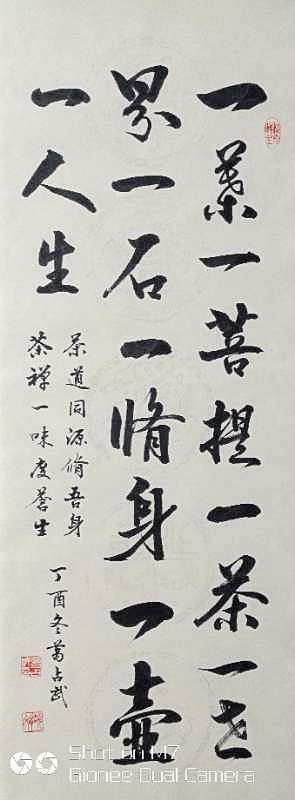 一葉一菩提一茶一世
界一石一脩身一壺
一人生
茶道同源脩吾身
茶禪一味度蒼生
丁酉冬萬占武
Shot on M7
Gionee Dual Camera